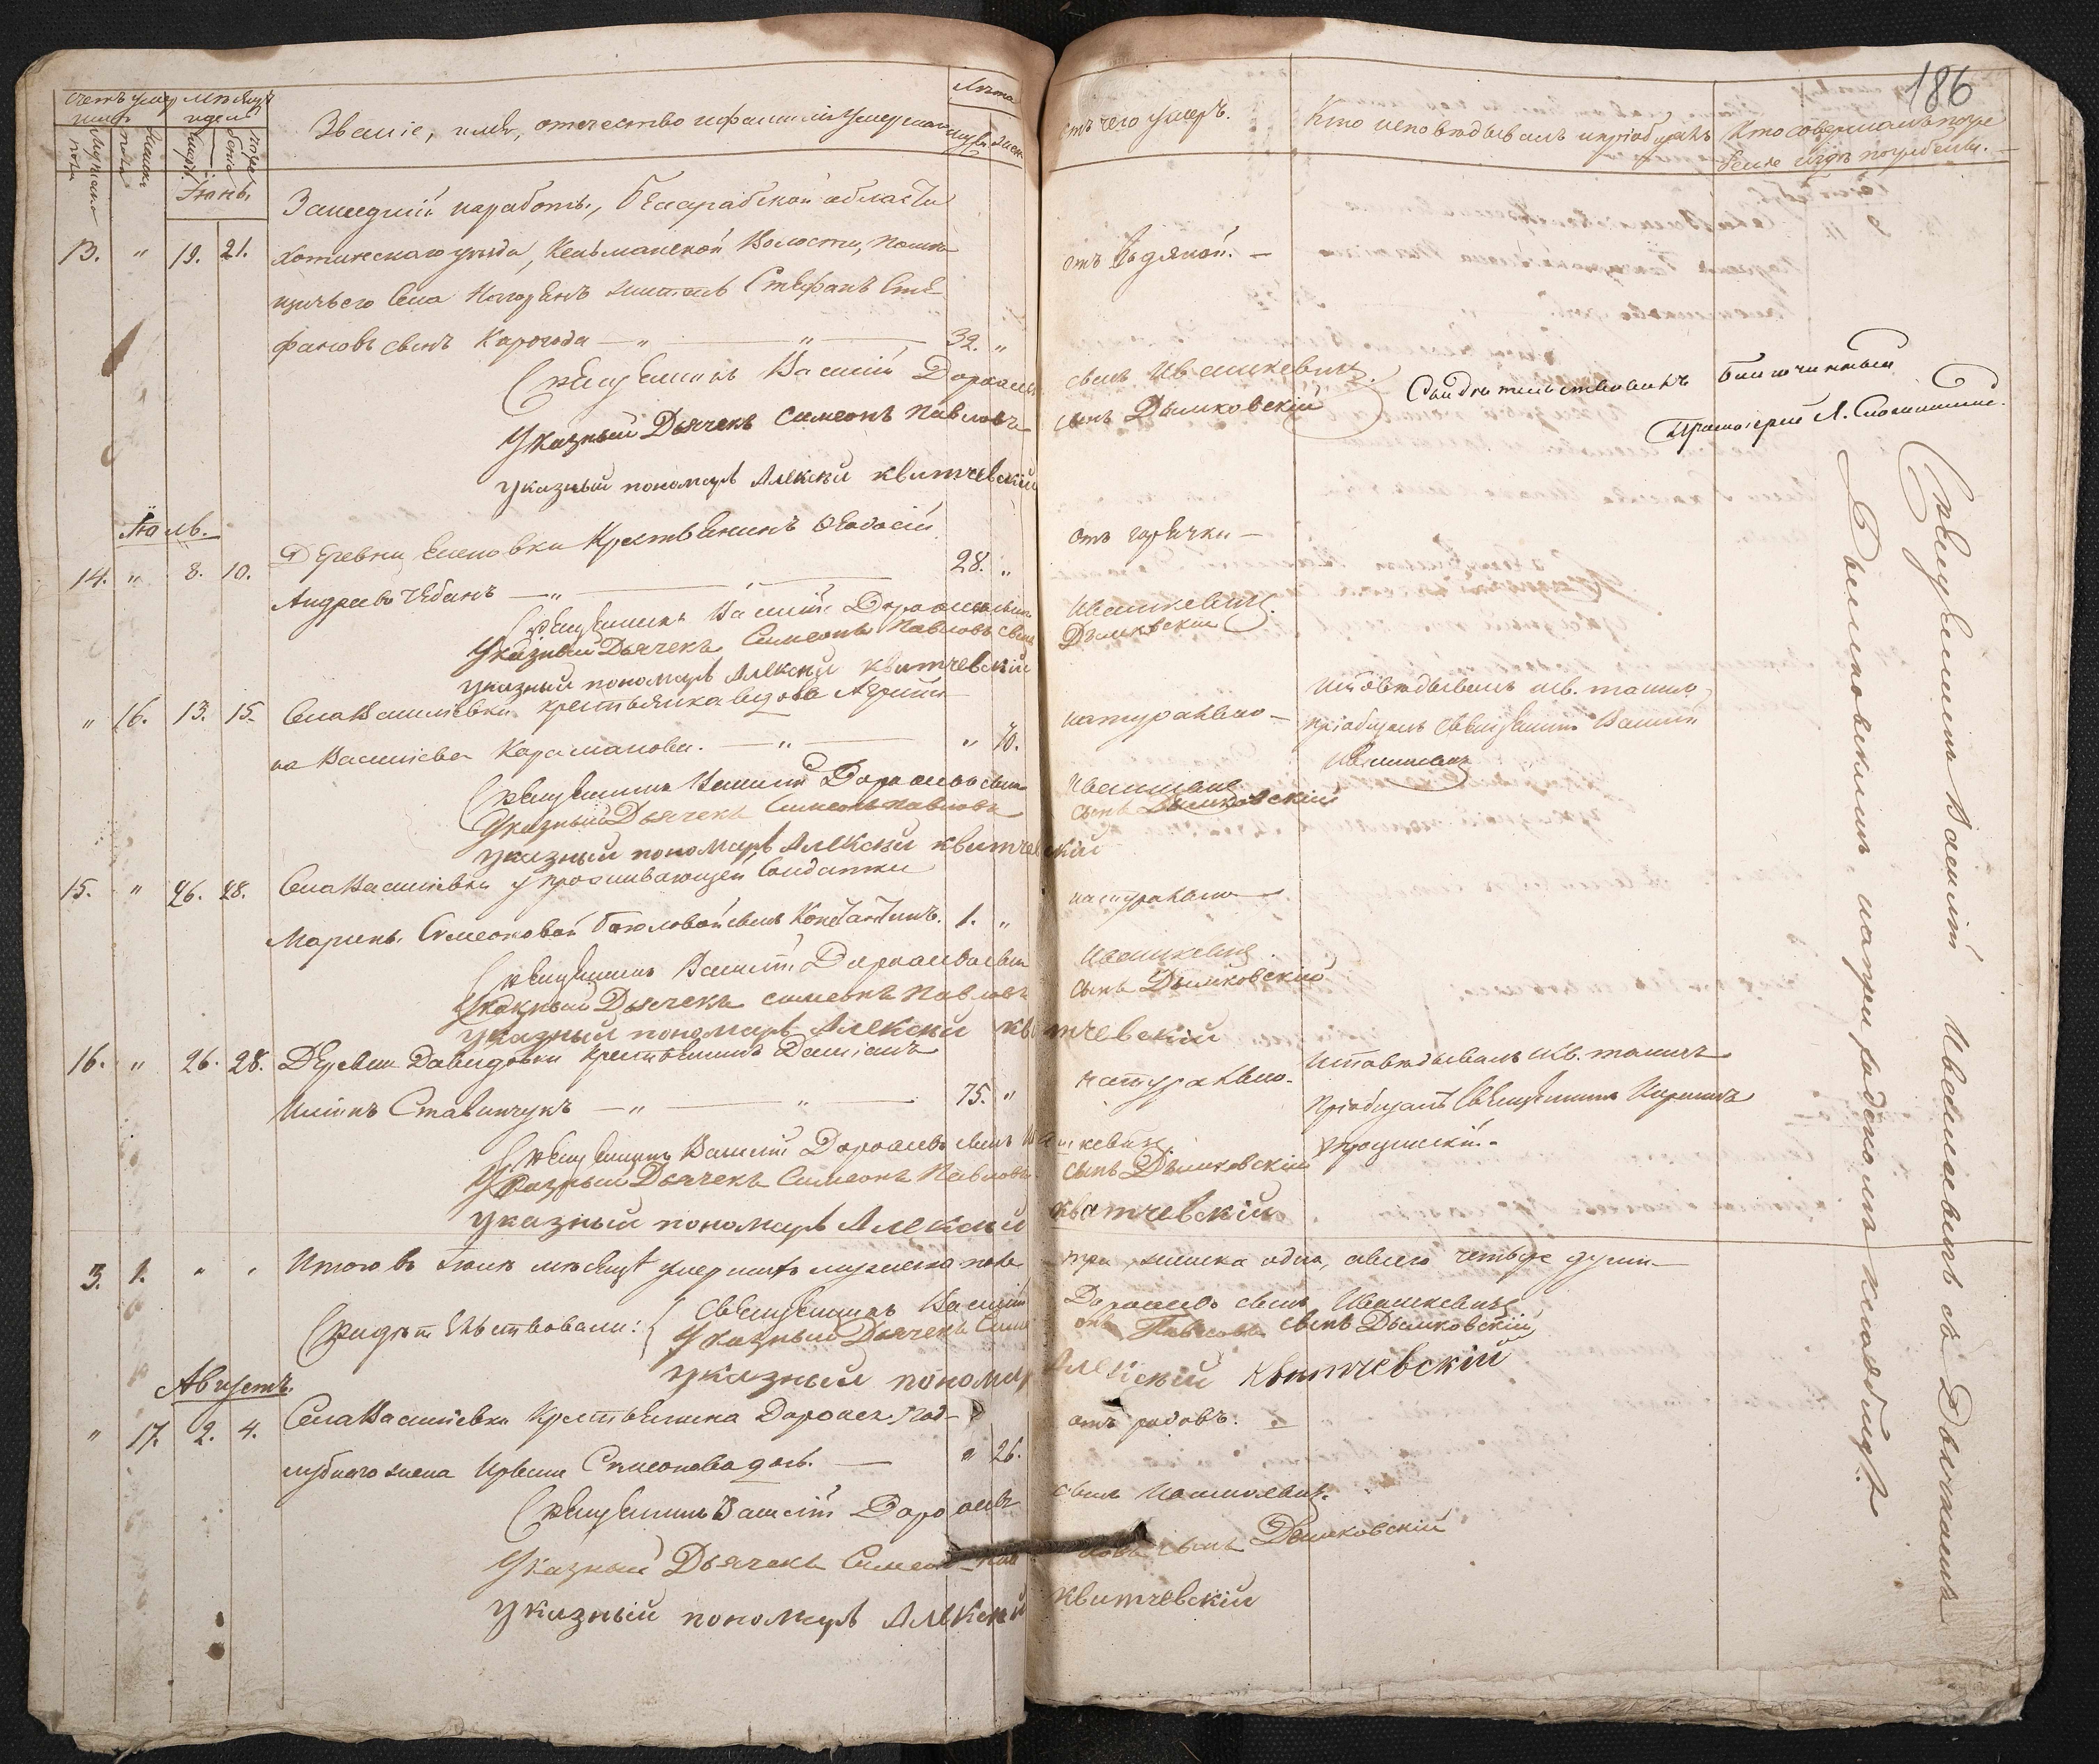 186
Счетъ умер
шихъ
Мѣсяцъ
и день
Званіе, имя, отечество и фамилія умершаго
Лѣта
отъ чего умеръ.
Кто исповѣдывалъ и пріобщалъ
Кто совершалъ погре
беніе и гдѣ погребены.
Іюнь.
Зашедшій на работы, Бесарабской области
13. " 19. 21. Хотинскаго уѣзда, Кельманской Волости, помѣ
щичьего села житель Стефанъ Сте
фановъ сынъ Карогода — " — " — 32. "
отъ водяной. —
Священникъ Василій Дорофеевъ сынъ Ивашкевичъ.
Указный Дьячекъ Симеонъ Павловъ сынъ Дымковскій
указный пономарь Алексѣй Квитчевскій
Свидѣтельствовалъ благочинный
Протоіерей Л.
Іюль.
14. " 8. 10. Деревни Еленовки Крестьянинъ Феодосій
Андреевъ Чебанъ — " — " — 28. "
отъ горячки —
Священникъ Василій Дорофеевъ сынъ Ивашкевичъ.
Указный Дьячекъ Симеонъ Павловъ сынъ Дымковскій
указный пономарь Алексѣй Квитчевскій
" 16. 13. 15. Села Василіевки крестьянка вдова Агрипи
на Василіева Караманова. — " — " 70.
натурально —
Исповѣдывалъ и св. таинъ
пріобщалъ Священникъ Василій
Ивашкевичъ
Священникъ Василій Дорофеевъ сынъ Ивашкевичъ
Указный Дьячекъ Симеонъ Павловъ сынъ Дымковскій
указный пономарь Алексѣй Квитчевскій
15. " 26. 28. Села Василіевки у проживающей Солдатки
Марины Симеоновой сынъ Константинъ. 1. "
натурально —
Священникъ Василій Дорофеевъ сынъ Ивашкевичъ.
Указный Дьячекъ Симеонъ Павловъ сынъ Дымковскій
указный пономарь Алексѣй Квитчевскій
16. " 26. 28. Деревни Давидовки крестьянинъ Даміанъ
Иліинъ Ставинчукъ — " — " — 75. "
натурально.
Исповѣдывалъ и св. таинъ
пріобщалъ Священникъ
Священникъ Василій Дорофеевъ сынъ Ивашкевичъ
Указный Дьячекъ Симеонъ Павловъ сынъ Дымковскій
указный пономарь Алексѣй Квитчевскій
3. 1. " " Итого въ Іюлѣ мѣсяцѣ умершихъ мужеска пола три, женска одна, обоего четыре души —
Свидѣтельствовали: Священникъ Василій Дорофеевъ сынъ Ивашкевичъ
Указный Дьячекъ Симеонъ Павловъ сынъ Дымковскій
указный пономарь Алексѣй Квитчевскій
Августъ.
" 17. 2. 4. Села Василіевки Крестьянина Дорофея Под-
лубнаго жена Ирина Симеонова дочь. — " 26.
отъ родовъ. —
Священникъ Василій Дорофеевъ сынъ Ивашкевичъ.
Указный Дьячекъ Симеонъ Павловъ сынъ Дымковскій
указный пономарь Алексѣй Квитчевскій
Священникъ Василій Ивашкевичъ съ Дьячкомъ
Дымковскимъ на приходскомъ кладбищѣ